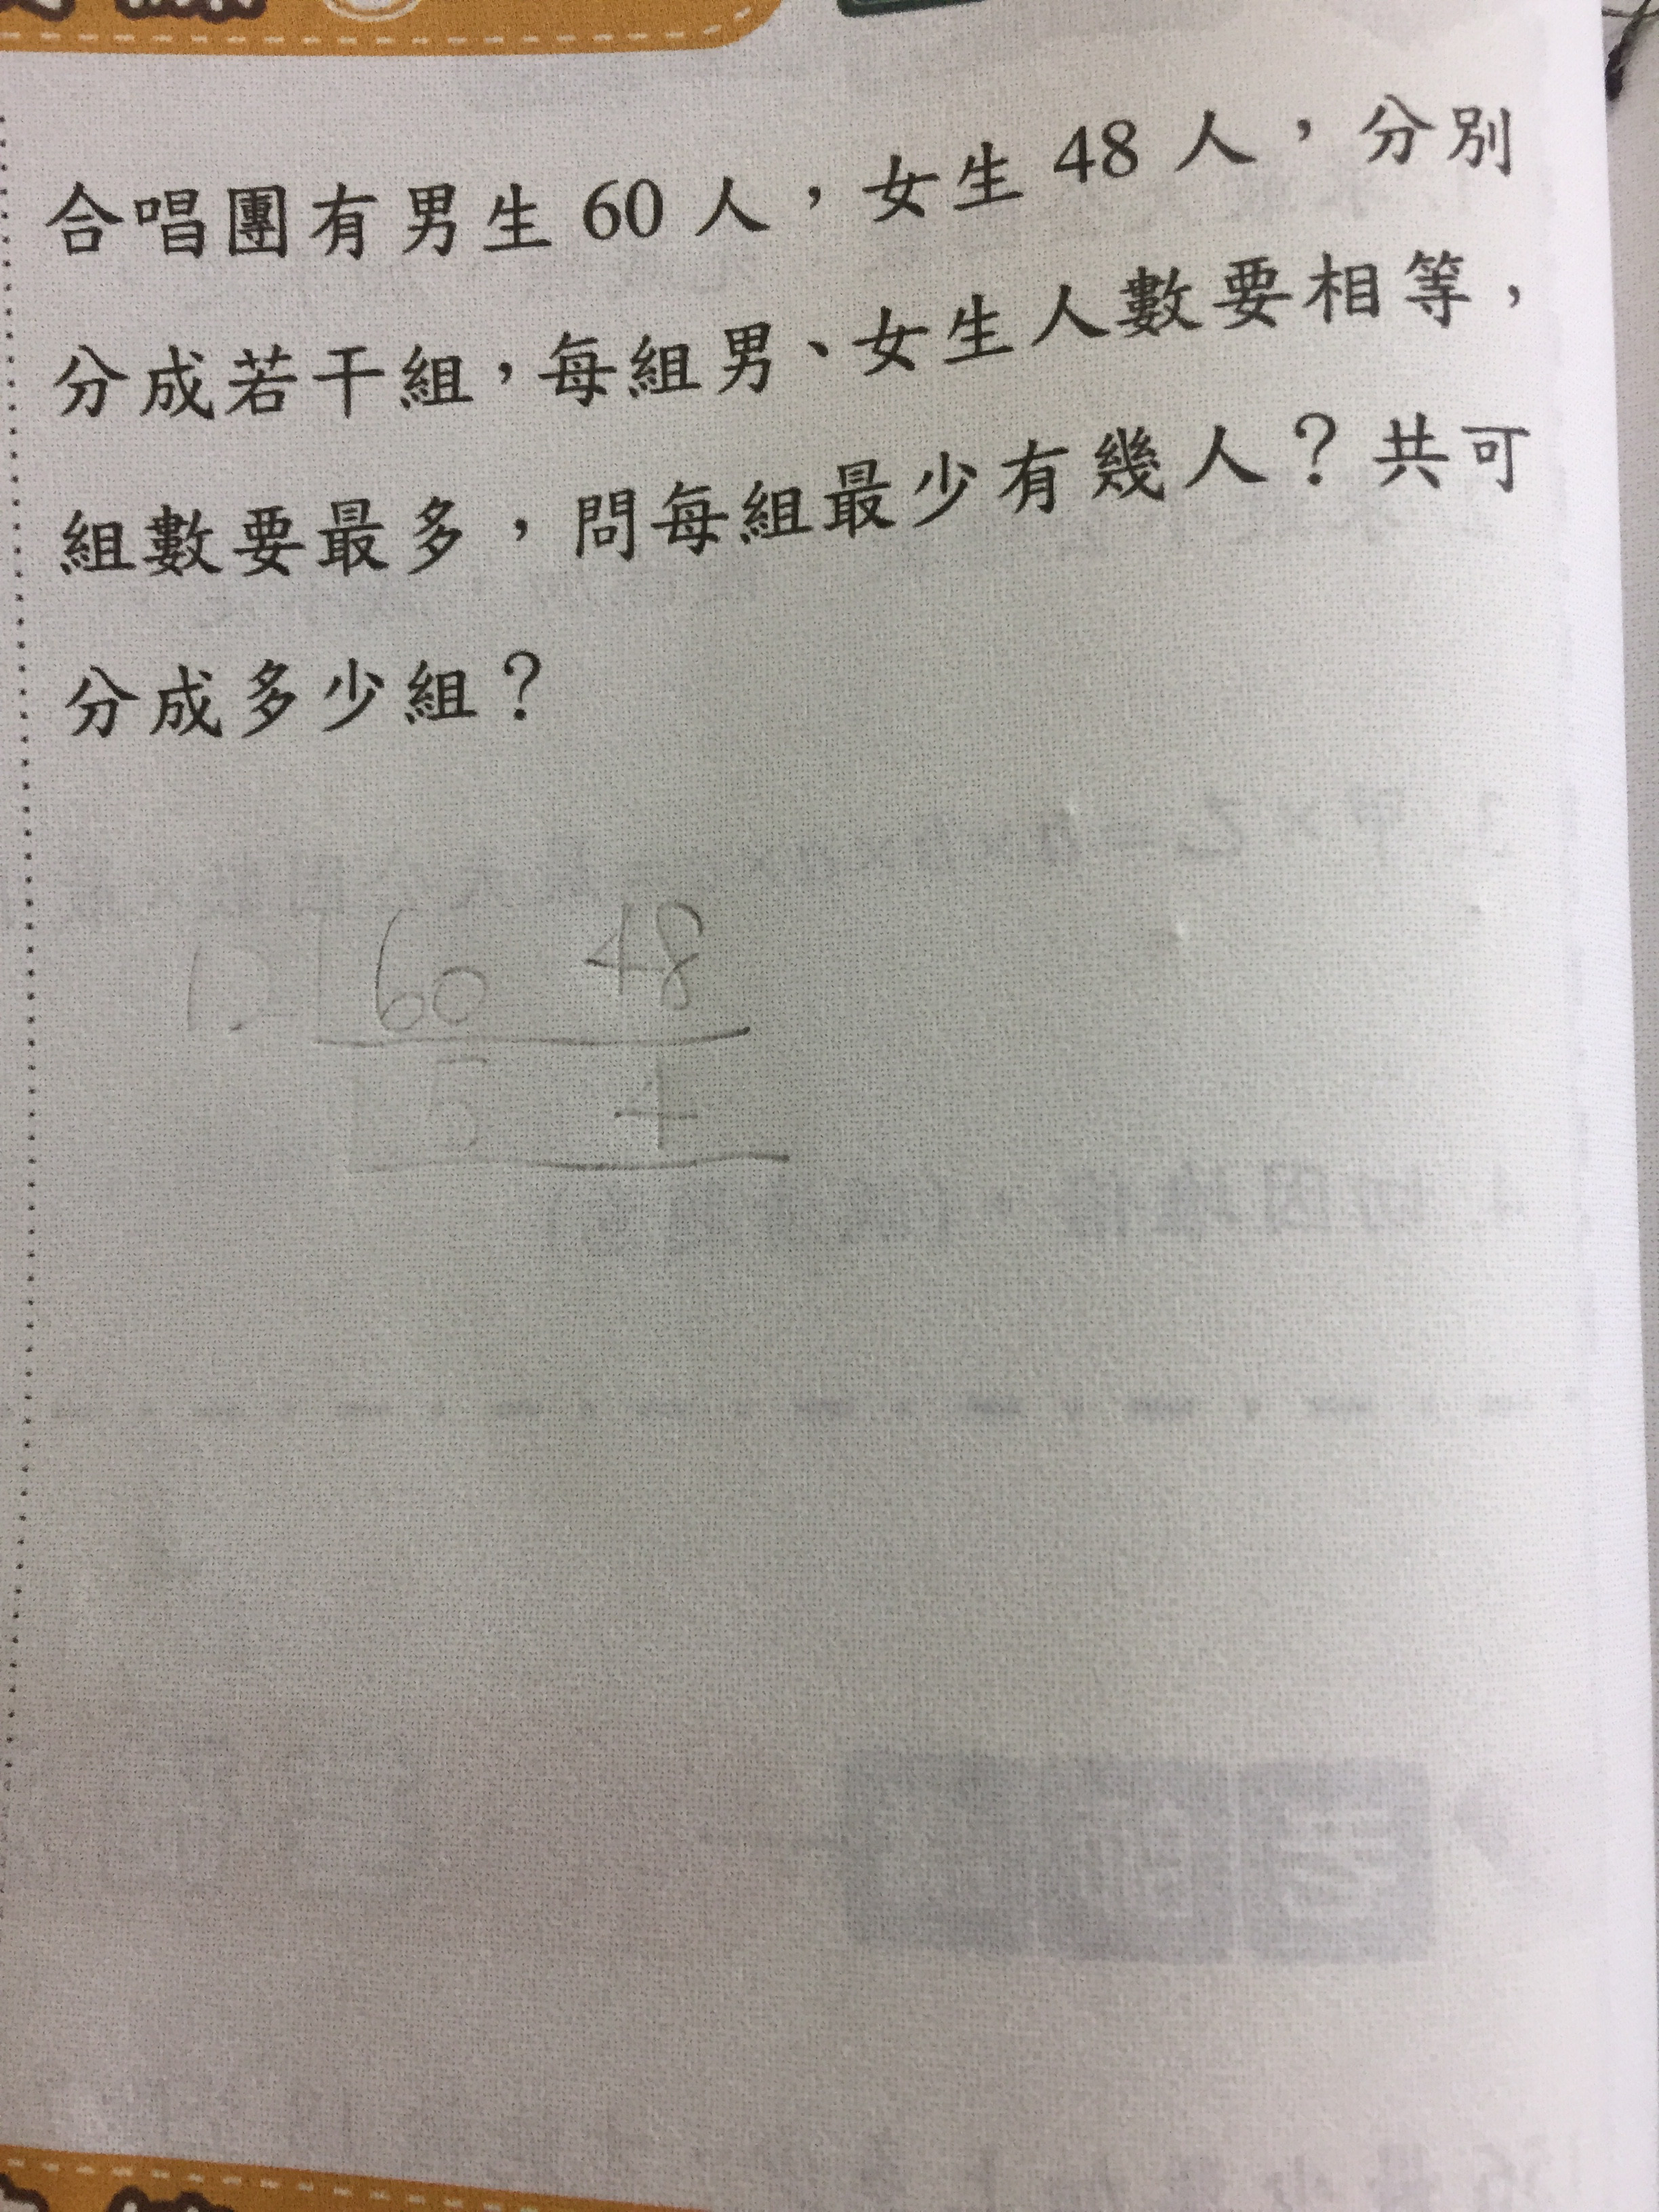 合唱團有男生 60 人，女生 48 人，分別
分成若干組，每組男、女生人數要相等，
組數要最多，問每組最少有幾人？共可
分成多少組？
12 60 48
5 4